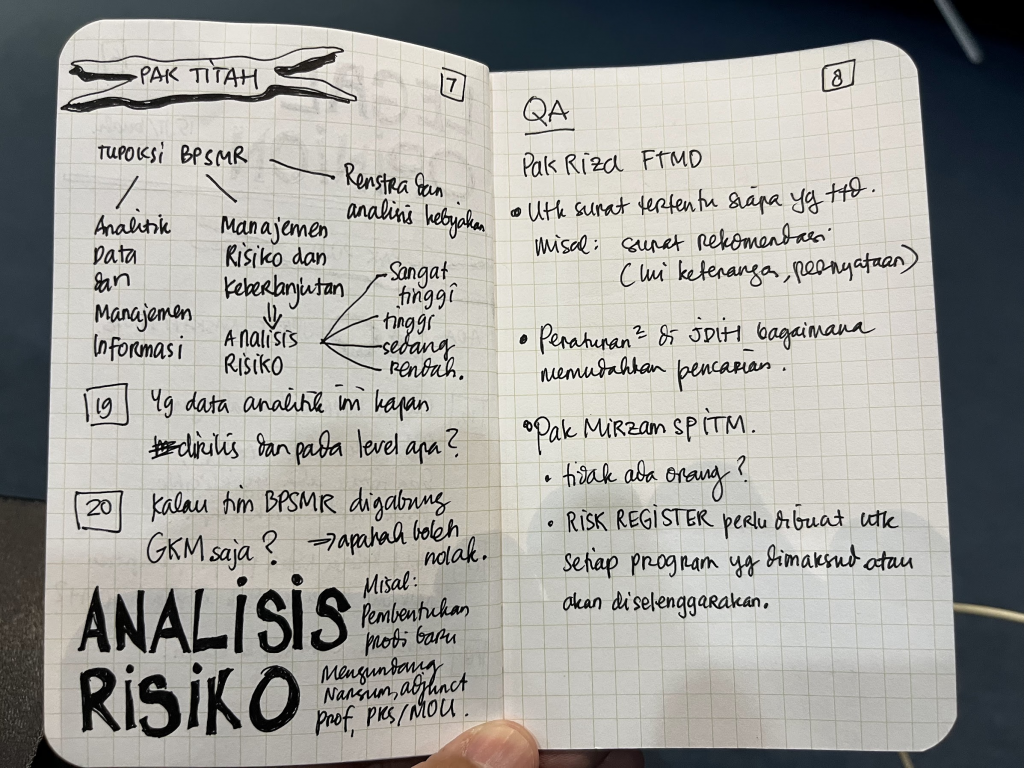 PAK TITAH
7
TUPOKSI BPSMR
Renstra dan
analisis kebijakan
Analitik
Data
dan
Manajemen
Informasi
Manajemen
Risiko dan
Keberlanjutan
⇓
ANALISIS
RISIKO
Sangat
tinggi
tinggi
sedang
rendah.
19
Yg data analitik ini kapan
dirilis dan pada level apa?
20
Kalau tim BPSMR digabung
GKM saja? ⇒ apakah boleh
nolak.
ANALISIS
RISIKO
Misal:
Pembentukan
prodi baru
Mengundang
Narsum, adjunct
prof, PKS/MOU.
8
QA
Pak Rizal FTMD
• Utk surat tertentu siapa yg ttd.
Misal: surat rekomendasi
keterangan, pernyataan)
• Peraturan² di JDIH bagaimana
memudahkan pencarian.
Pak Mirzam SPITM.
• tidak ada orang?
• RISK REGISTER perlu dibuat utk
setiap program yg dimaksud atau
akan diselenggarakan.